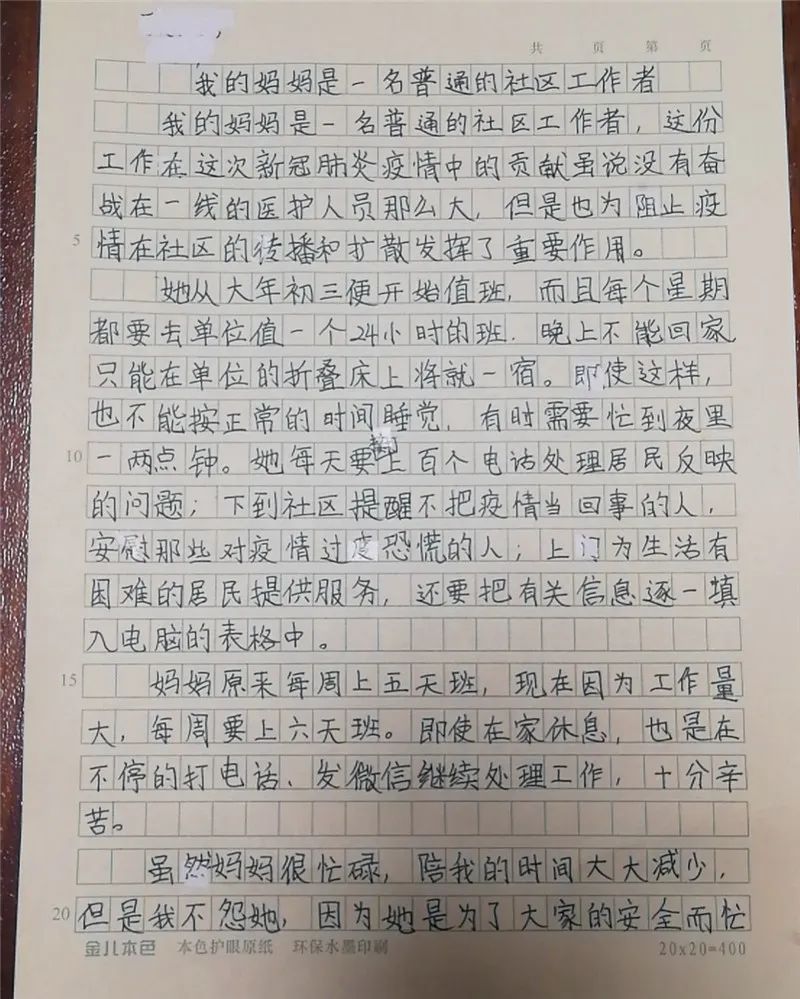 共 页 第 页
我的妈妈是一名普通的社区工作者
我的妈妈是一名普通的社区工作者，这份
工作在这次新冠肺炎疫情中的贡献虽说没有奋
战在一线的医护人员那么大，但是也为阻止疫
5 情在社区的传播和扩散发挥了重要作用。
她从大年初三便开始值班，而且每个星期
都要去单位值一个24小时的班．晚上不能回家
只能在单位的折叠床上将就一宿。即使这样，
也不能按正常的时间睡觉，有时需要忙到夜里
10 一两点钟。她每天要接上百个电话处理居民反映
的问题；下到社区提醒不把疫情当回事的人，
安慰那些对疫情过度恐慌的人；上门为生活有
困难的居民提供服务，还要把有关信息逐一填
入电脑的表格中。
15 妈妈原来每周上五天班，现在因为工作量
大，每周要上六天班。即使在家休息，也是在
不停的打电话、发微信继续处理工作，十分辛
苦。
虽然妈妈很忙碌，陪我的时间大大减少，
20 但是我不怨她，因为她是为了大家的安全而忙
金儿本色 本色护眼原纸 环保水墨印刷 20x20=400